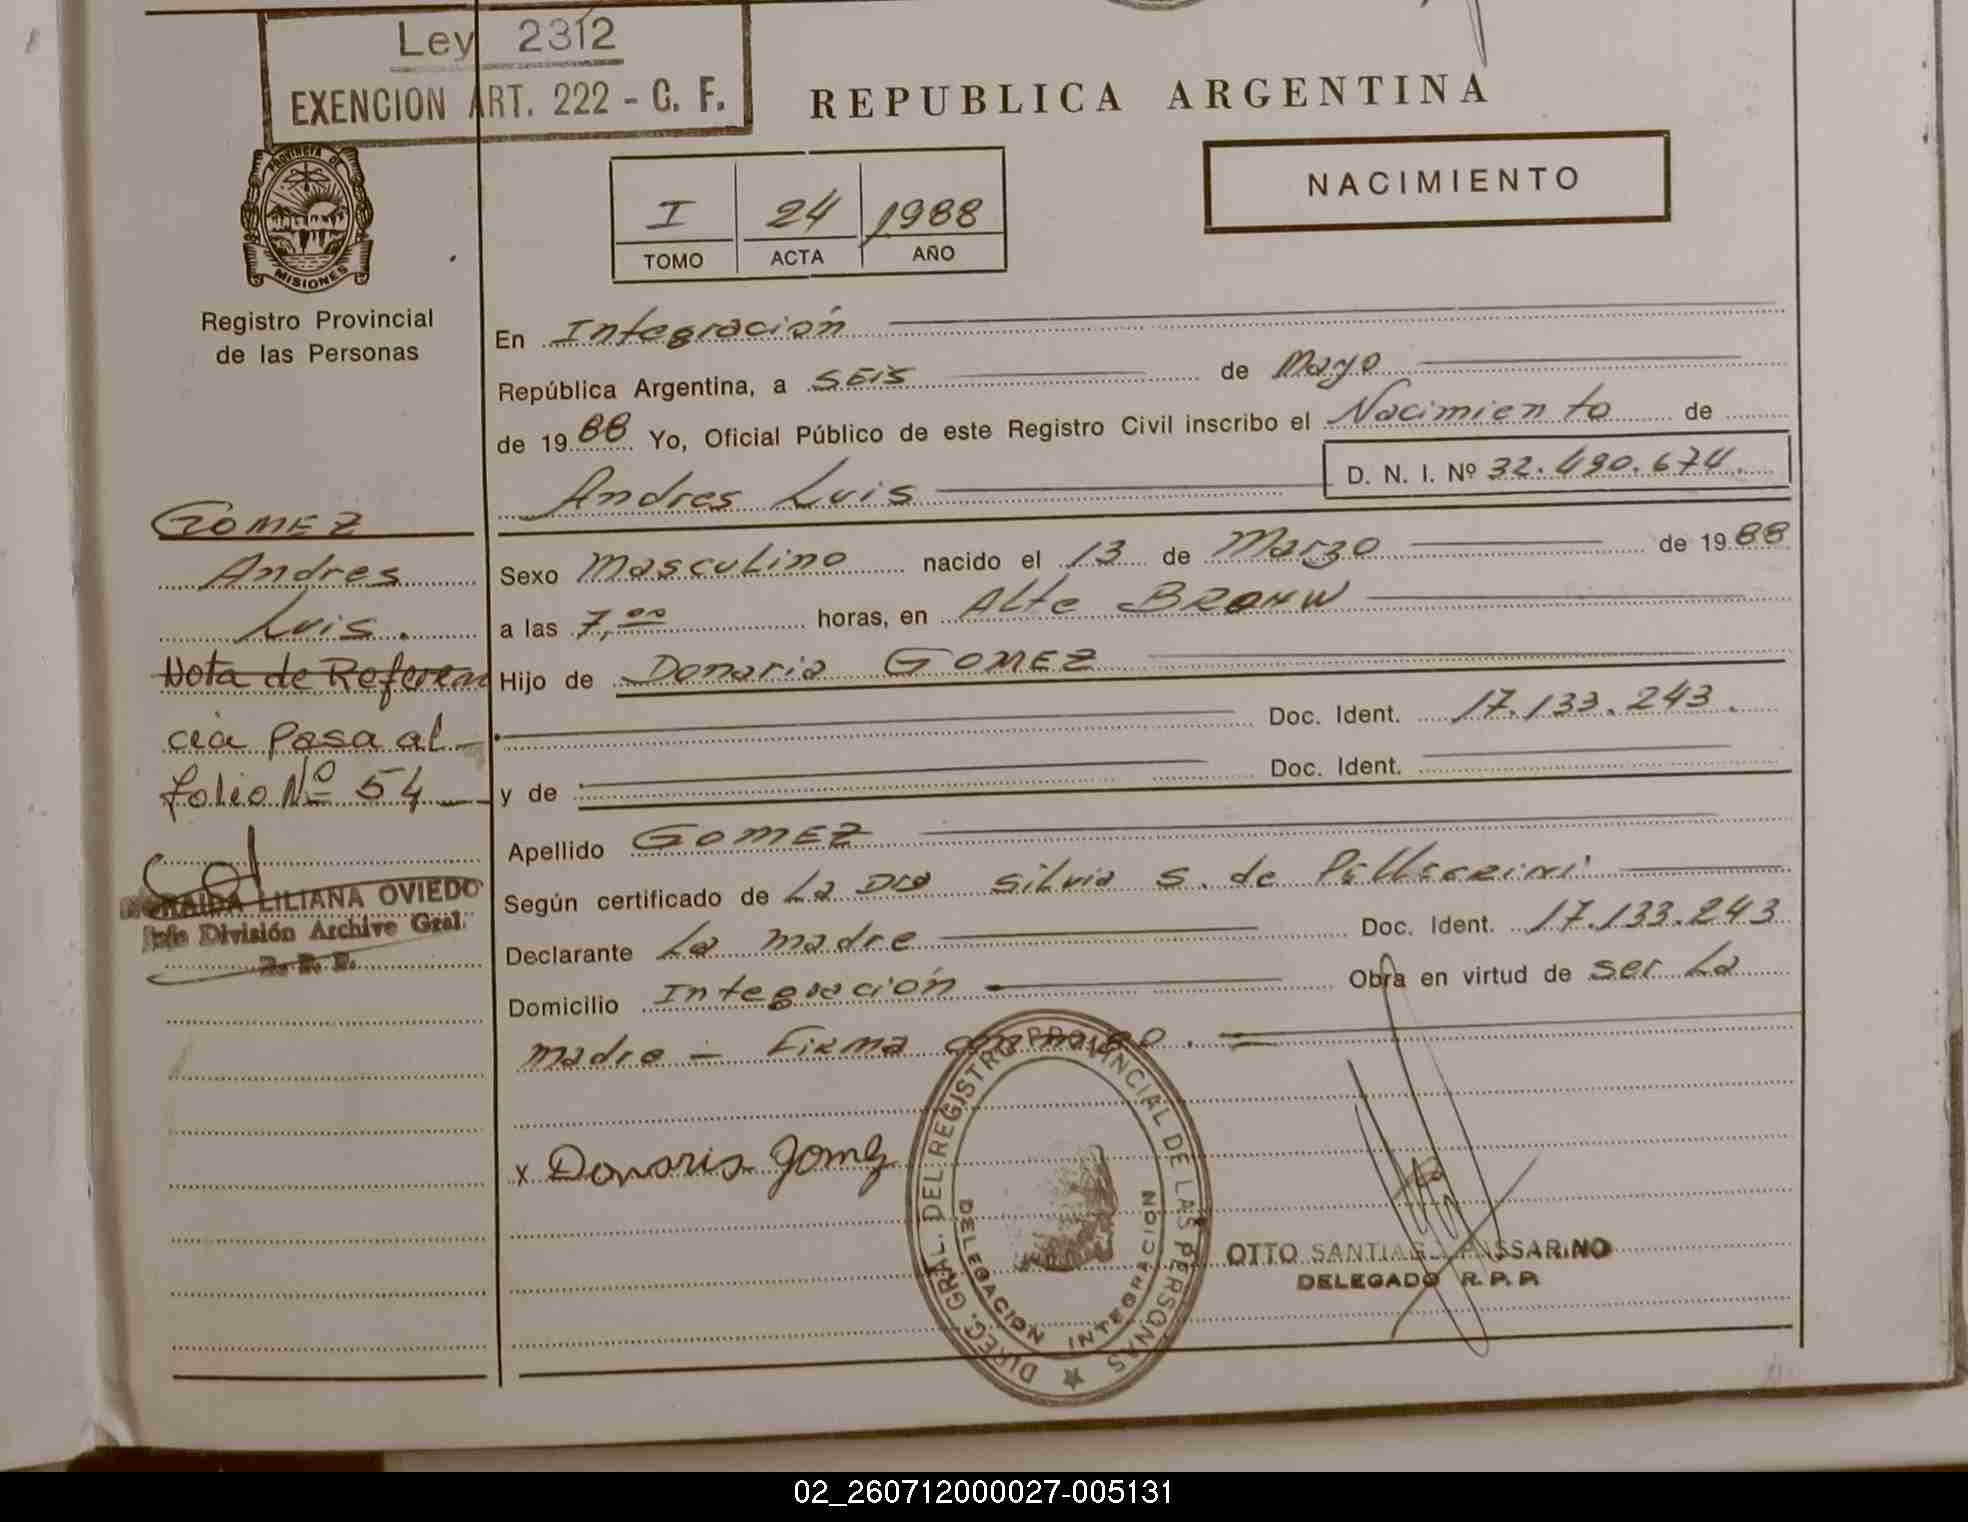 Ley 2312
EXENCION ART. 222 - C. F.
REPUBLICA ARGENTINA
PROVINCIA DE
MISIONES
Registro Provincial
de las Personas
I 24 1988
TOMO ACTA AÑO
NACIMIENTO
En Integración
República Argentina, a SEIS de Mayo
de 1988 Yo, Oficial Público de este Registro Civil inscribo el Nacimiento de
Andres Luis D. N. I. Nº 32.490.674.
Sexo Masculino nacido el 13 de Marzo de 1988
a las 7,00 horas, en Alte BROWN
Hijo de Donaria GOMEZ
Doc. Ident. 17.133.243.
y de Doc. Ident.
Apellido GOMEZ
Según certificado de La Dra Silvia S. de PELLEGRINI
Declarante La madre Doc. Ident. 17.133.243
Domicilio Integración Obra en virtud de ser La
madre - Firma conmigo.
x Donaria Gomez
DIREC. GRAL. DEL REGISTRO PROVINCIAL DE LAS PERSONAS
DELEGACION INTEGRACION
OTTO SANTIAGO PASSARINO
DELEGADO R. P. P.
GOMEZ
Andres
Luis.
Nota de Referen
cia Pasa al
folio Nº 54
LILIANA OVIEDO
Jefe División Archivo Gral.
R. P. P.
02_260712000027-005131